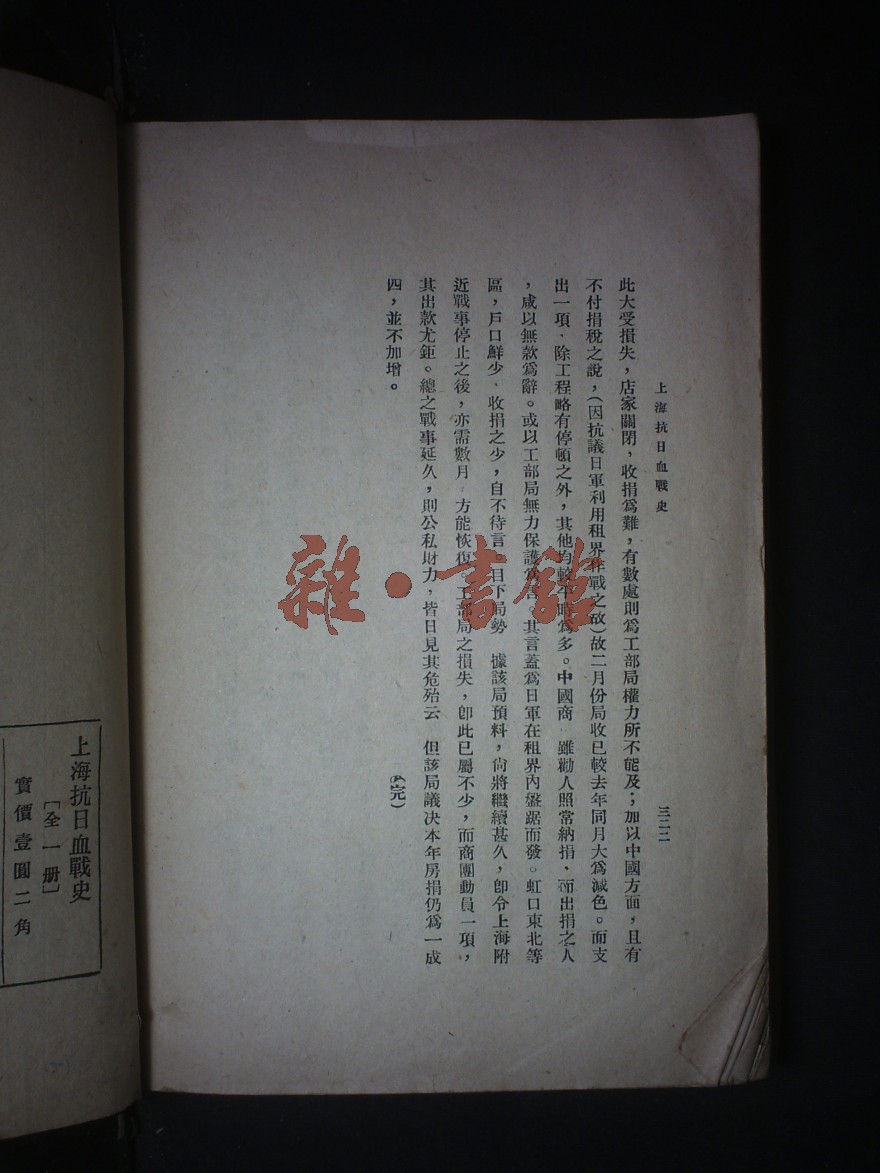 上海抗日血戰史
三二二
此大受損失，店家關閉，收捐爲難，有數處則爲工部局權力所不能及；加以中國方面，且有
不付捐稅之說，（因抗議日軍利用租界作戰之故）故二月份局收已較去年同月大爲減色。而支
出一項，除工程略有停頓之外，其他均較平時爲多。中國商 雖勸人照常納捐，而出捐之人
，咸以無款爲辭。或以工部局無力保護爲言。其言蓋爲日軍在租界內盤踞而發。虹口東北等
區，戶口鮮少、收捐之少，自不待言。目下局勢 據該局預料，尙將繼續甚久，卽令上海附
近戰事停止之後，亦需數月 方能恢復 工部局之損失，卽此已屬不少，而商團動員一項，
其出款尤鉅。總之戰事延久，則公私財力，皆日見其危殆云 但該局議决本年房捐仍爲一成
四，並不加增。
（完）
雜·書館
上海抗日血戰史
［全一册］
實價壹圓二角